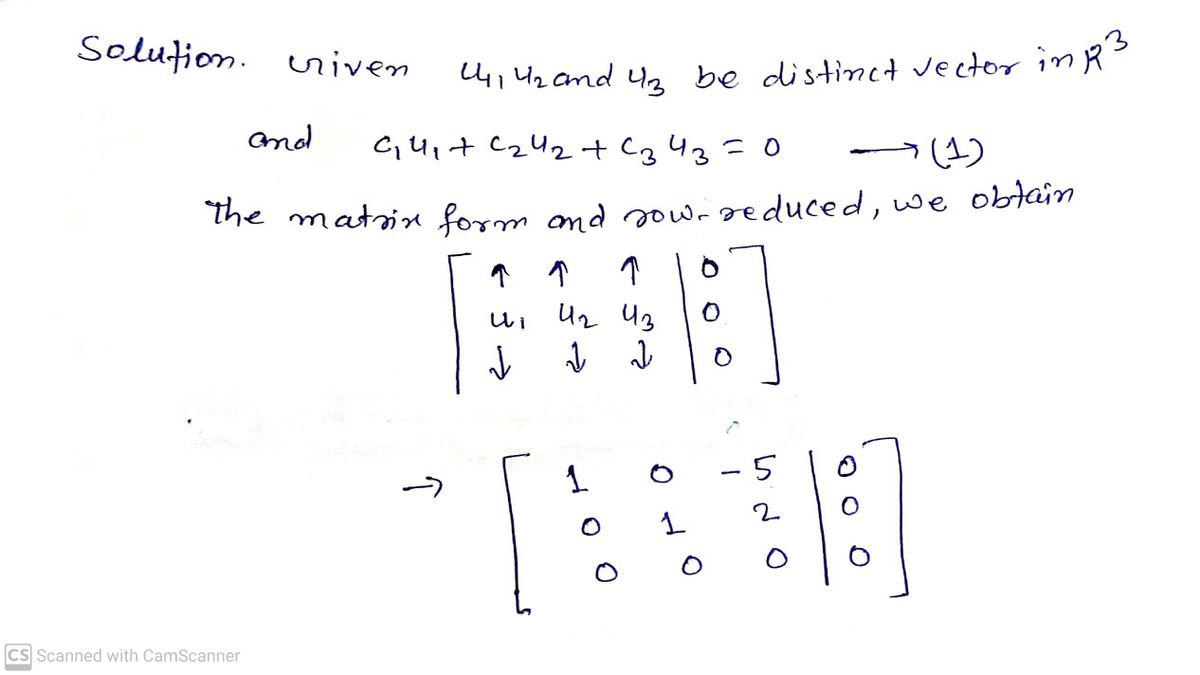 Solution. Given u₁, u₂ and u₃ be distinct vector in R³
and c₁u₁ + c₂u₂ + c₃u₃ = 0 → (1)
The matrix form and row-reduced, we obtain
[ ↑ ↑ ↑ | 0
u₁ u₂ u₃ | 0
↓ ↓ ↓ | 0 ]
→ [ 1 0 -5 | 0
0 1 2 | 0
0 0 0 | 0 ]
CS Scanned with CamScanner